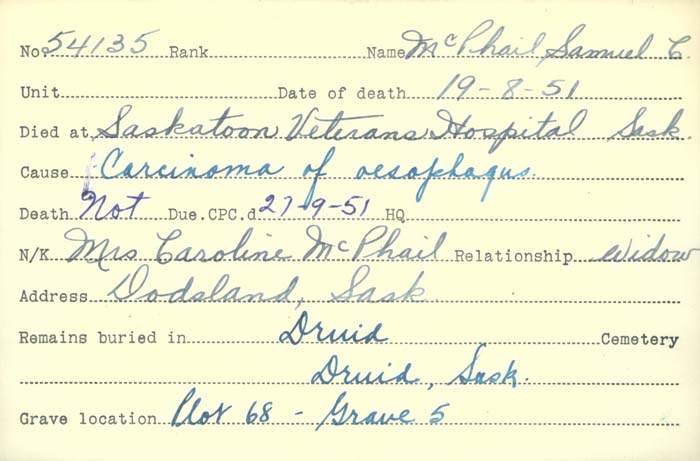 No. 54135 Rank Name McPhail, Samuel C.
Unit Date of death 19-8-51
Died at Saskatoon Veterans Hospital Sask.
Cause Carcinoma of oesophagus.
Death Not Due.CPC.d 27-9-51 HQ
N/K Mrs Caroline McPhail Relationship widow
Address Dodsland, Sask.
Remains buried in Druid Cemetery
Druid, Sask.
Grave location Plot 68 - Grave 5